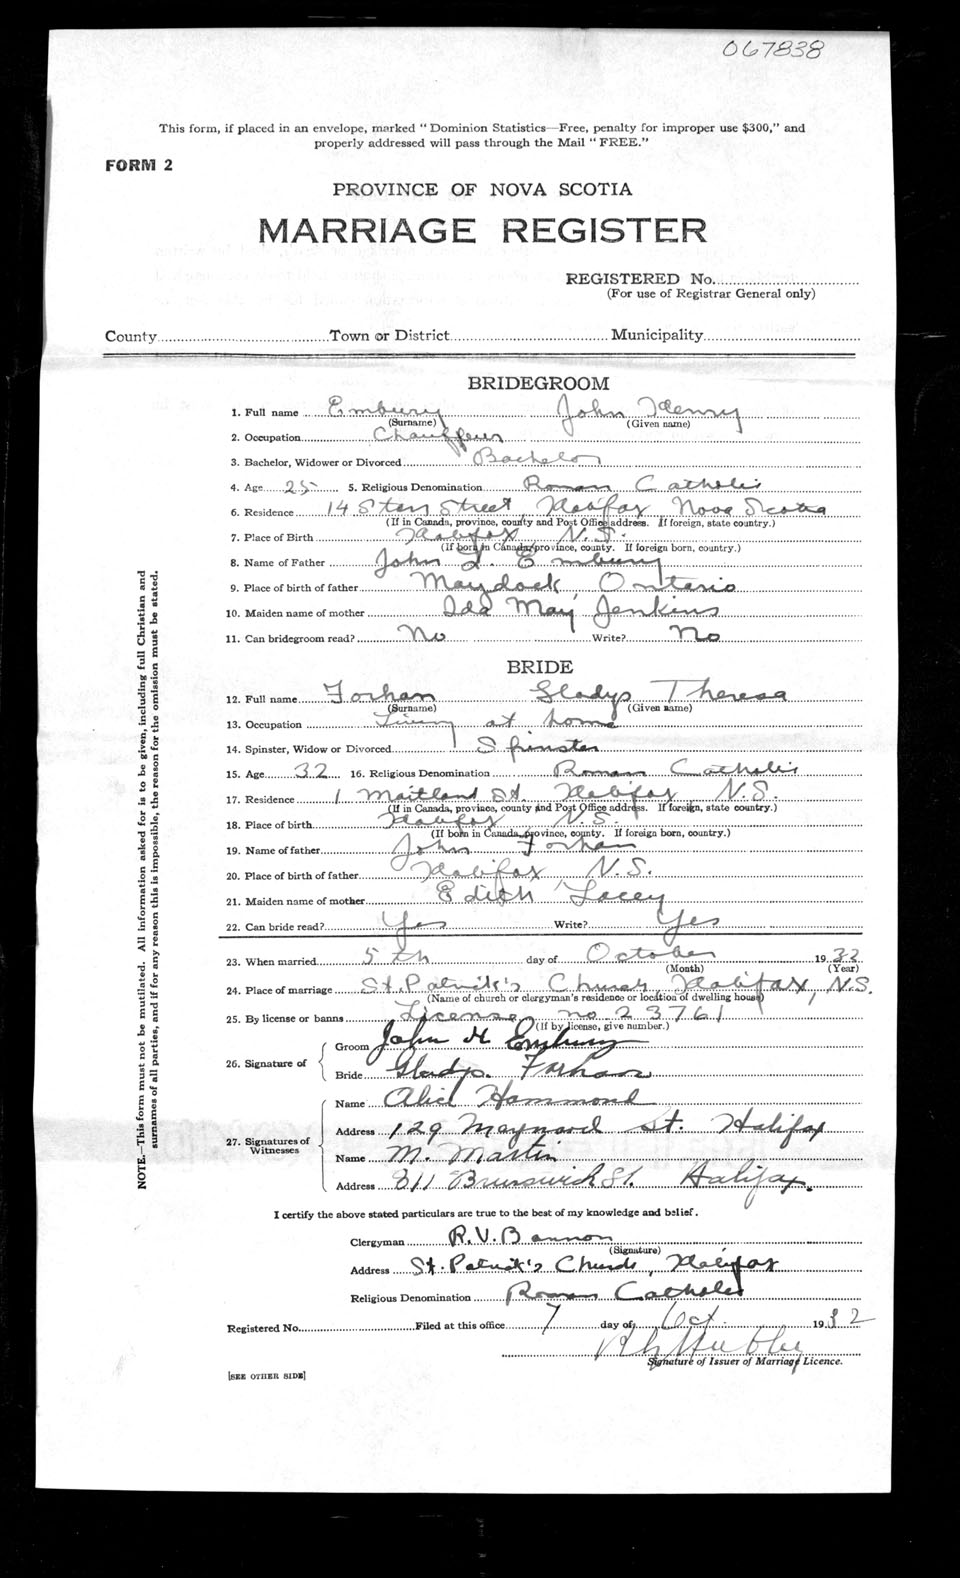 067838
This form, if placed in an envelope, marked "Dominion Statistics—Free, penalty for improper use $300," and
properly addressed will pass through the Mail "FREE."
FORM 2
PROVINCE OF NOVA SCOTIA
MARRIAGE REGISTER
REGISTERED No.
(For use of Registrar General only)
County Town or District Municipality
BRIDEGROOM
1. Full name Embury John Henry
(Surname) (Given name)
2. Occupation Chauffeur
3. Bachelor, Widower or Divorced Bachelor
4. Age 25 5. Religious Denomination Roman Catholic
6. Residence 14 Starr Street, Halifax Nova Scotia
(If in Canada, province, county and Post Office address. If foreign, state country.)
7. Place of Birth Halifax N.S.
(If born in Canada, province, county. If foreign born, country.)
8. Name of Father John L. Embury
9. Place of birth of father Maydock, Ontario
10. Maiden name of mother Ida May Jenkins
11. Can bridegroom read? No Write? No
BRIDE
12. Full name Forhan Gladys Theresa
(Surname) (Given name)
13. Occupation Living at home
14. Spinster, Widow or Divorced Spinster
15. Age 32 16. Religious Denomination Roman Catholic
17. Residence 1 Maitland St. Halifax N.S.
(If in Canada, province, county and Post Office address. If foreign, state country.)
18. Place of birth Halifax N.S.
(If born in Canada, province, county. If foreign born, country.)
19. Name of father John Forhan
20. Place of birth of father Halifax N.S.
21. Maiden name of mother Edith Lacey
22. Can bride read? Yes Write? Yes
23. When married 5th day of October 1932
(Month) (Year)
24. Place of marriage St. Patrick's Church, Halifax, N.S.
(Name of church or clergyman's residence or location of dwelling house)
25. By license or banns License no 23761
(If by license, give number.)
26. Signature of Groom John H Embury
Bride Gladys Forhan
27. Signatures of Witnesses
Name Alice Hammond
Address 129 Maynard St. Halifax
Name M. Martin
Address 311 Brunswick St. Halifax.
I certify the above stated particulars are true to the best of my knowledge and belief.
Clergyman R.V. Bannon
(Signature)
Address St. Patrick's Church, Halifax
Religious Denomination Roman Catholic
Registered No. Filed at this office 7 day of Oct. 1932
Signature of Issuer of Marriage Licence.
[SEE OTHER SIDE]
NOTE.—This form must not be mutilated. All information asked for is to be given, including full Christian and
surnames of all parties, and if for any reason this is impossible, the reason for the omission must be stated.